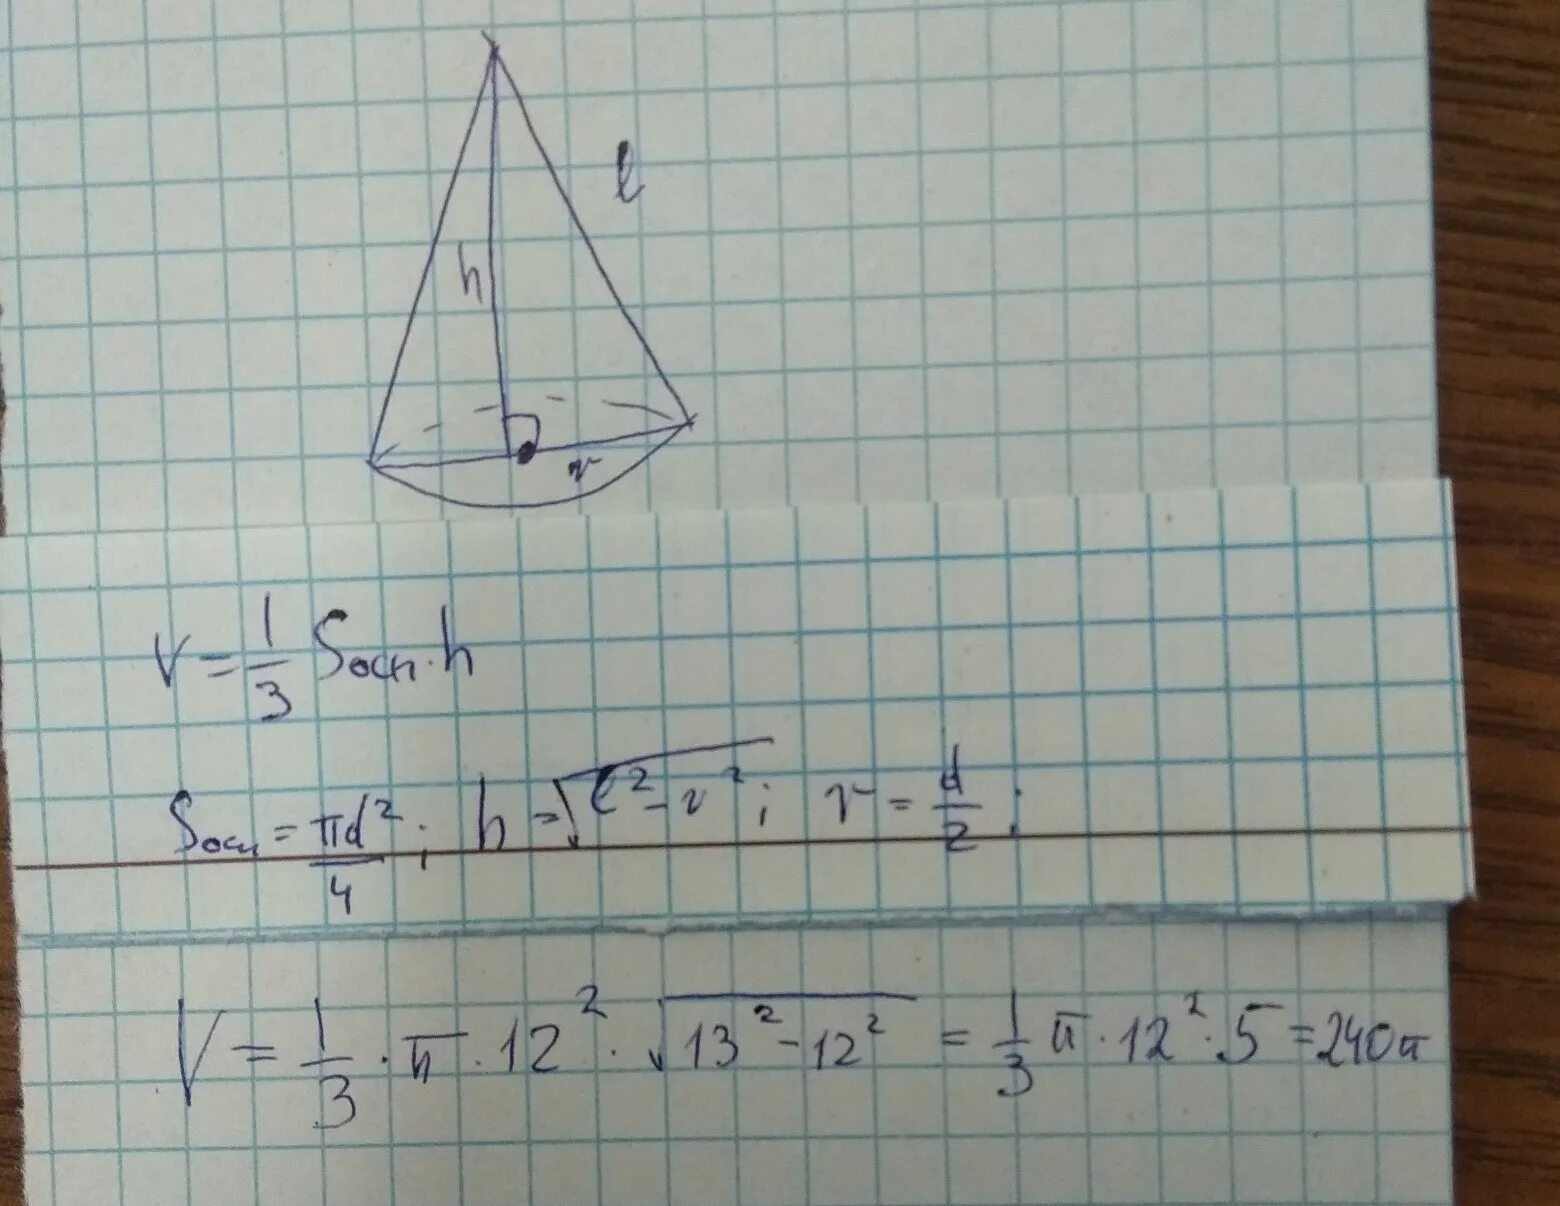 l
h
r
V = 1/3 Sосн · h
Sосн = πd²/4 ; h = √(l² - r²) ; r = d/2 ;
V = 1/3 · π · 12² · √(13² - 12²) = 1/3 π · 12² · 5 = 240π